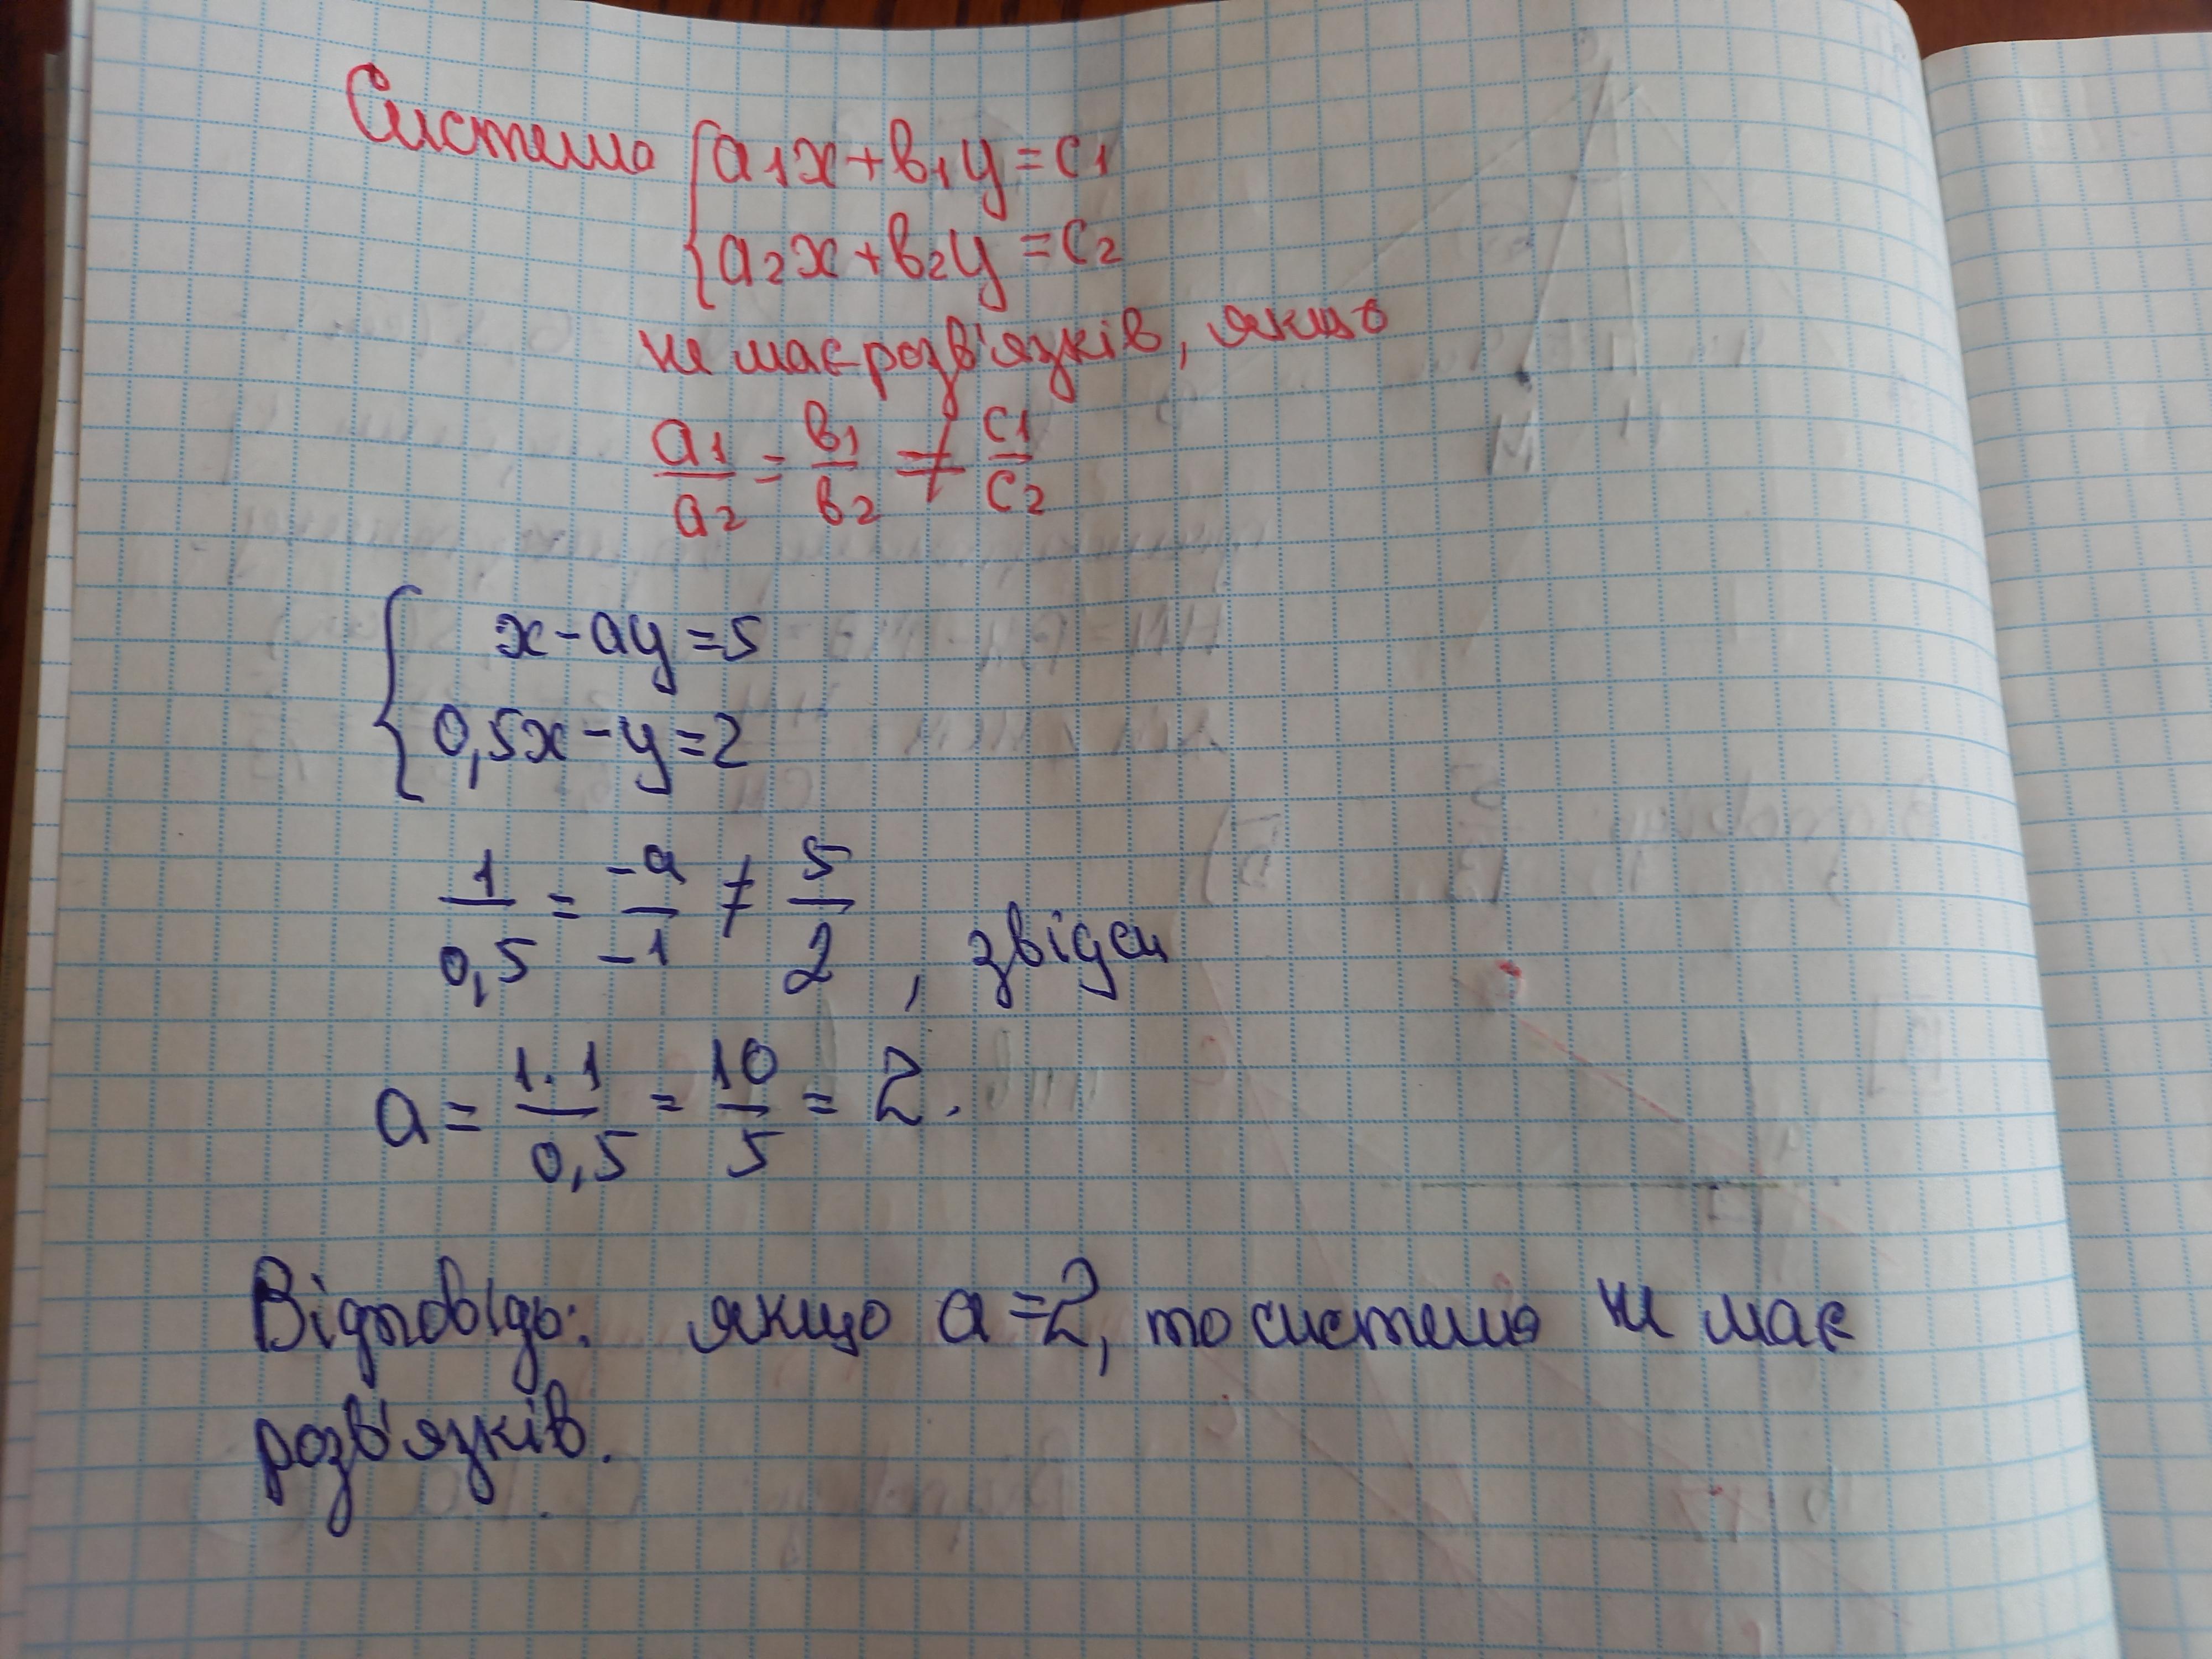 Система { a₁x + b₁y = c₁
a₂x + b₂y = c₂
не має розв'язків, якщо
a₁/a₂ = b₁/b₂ ≠ c₁/c₂
{ x - ay = 5
0,5x - y = 2
1/0,5 = -a/-1 ≠ 5/2 , звідси
a = 1·1/0,5 = 10/5 = 2.
Відповідь: якщо a = 2, то система не має
розв'язків.